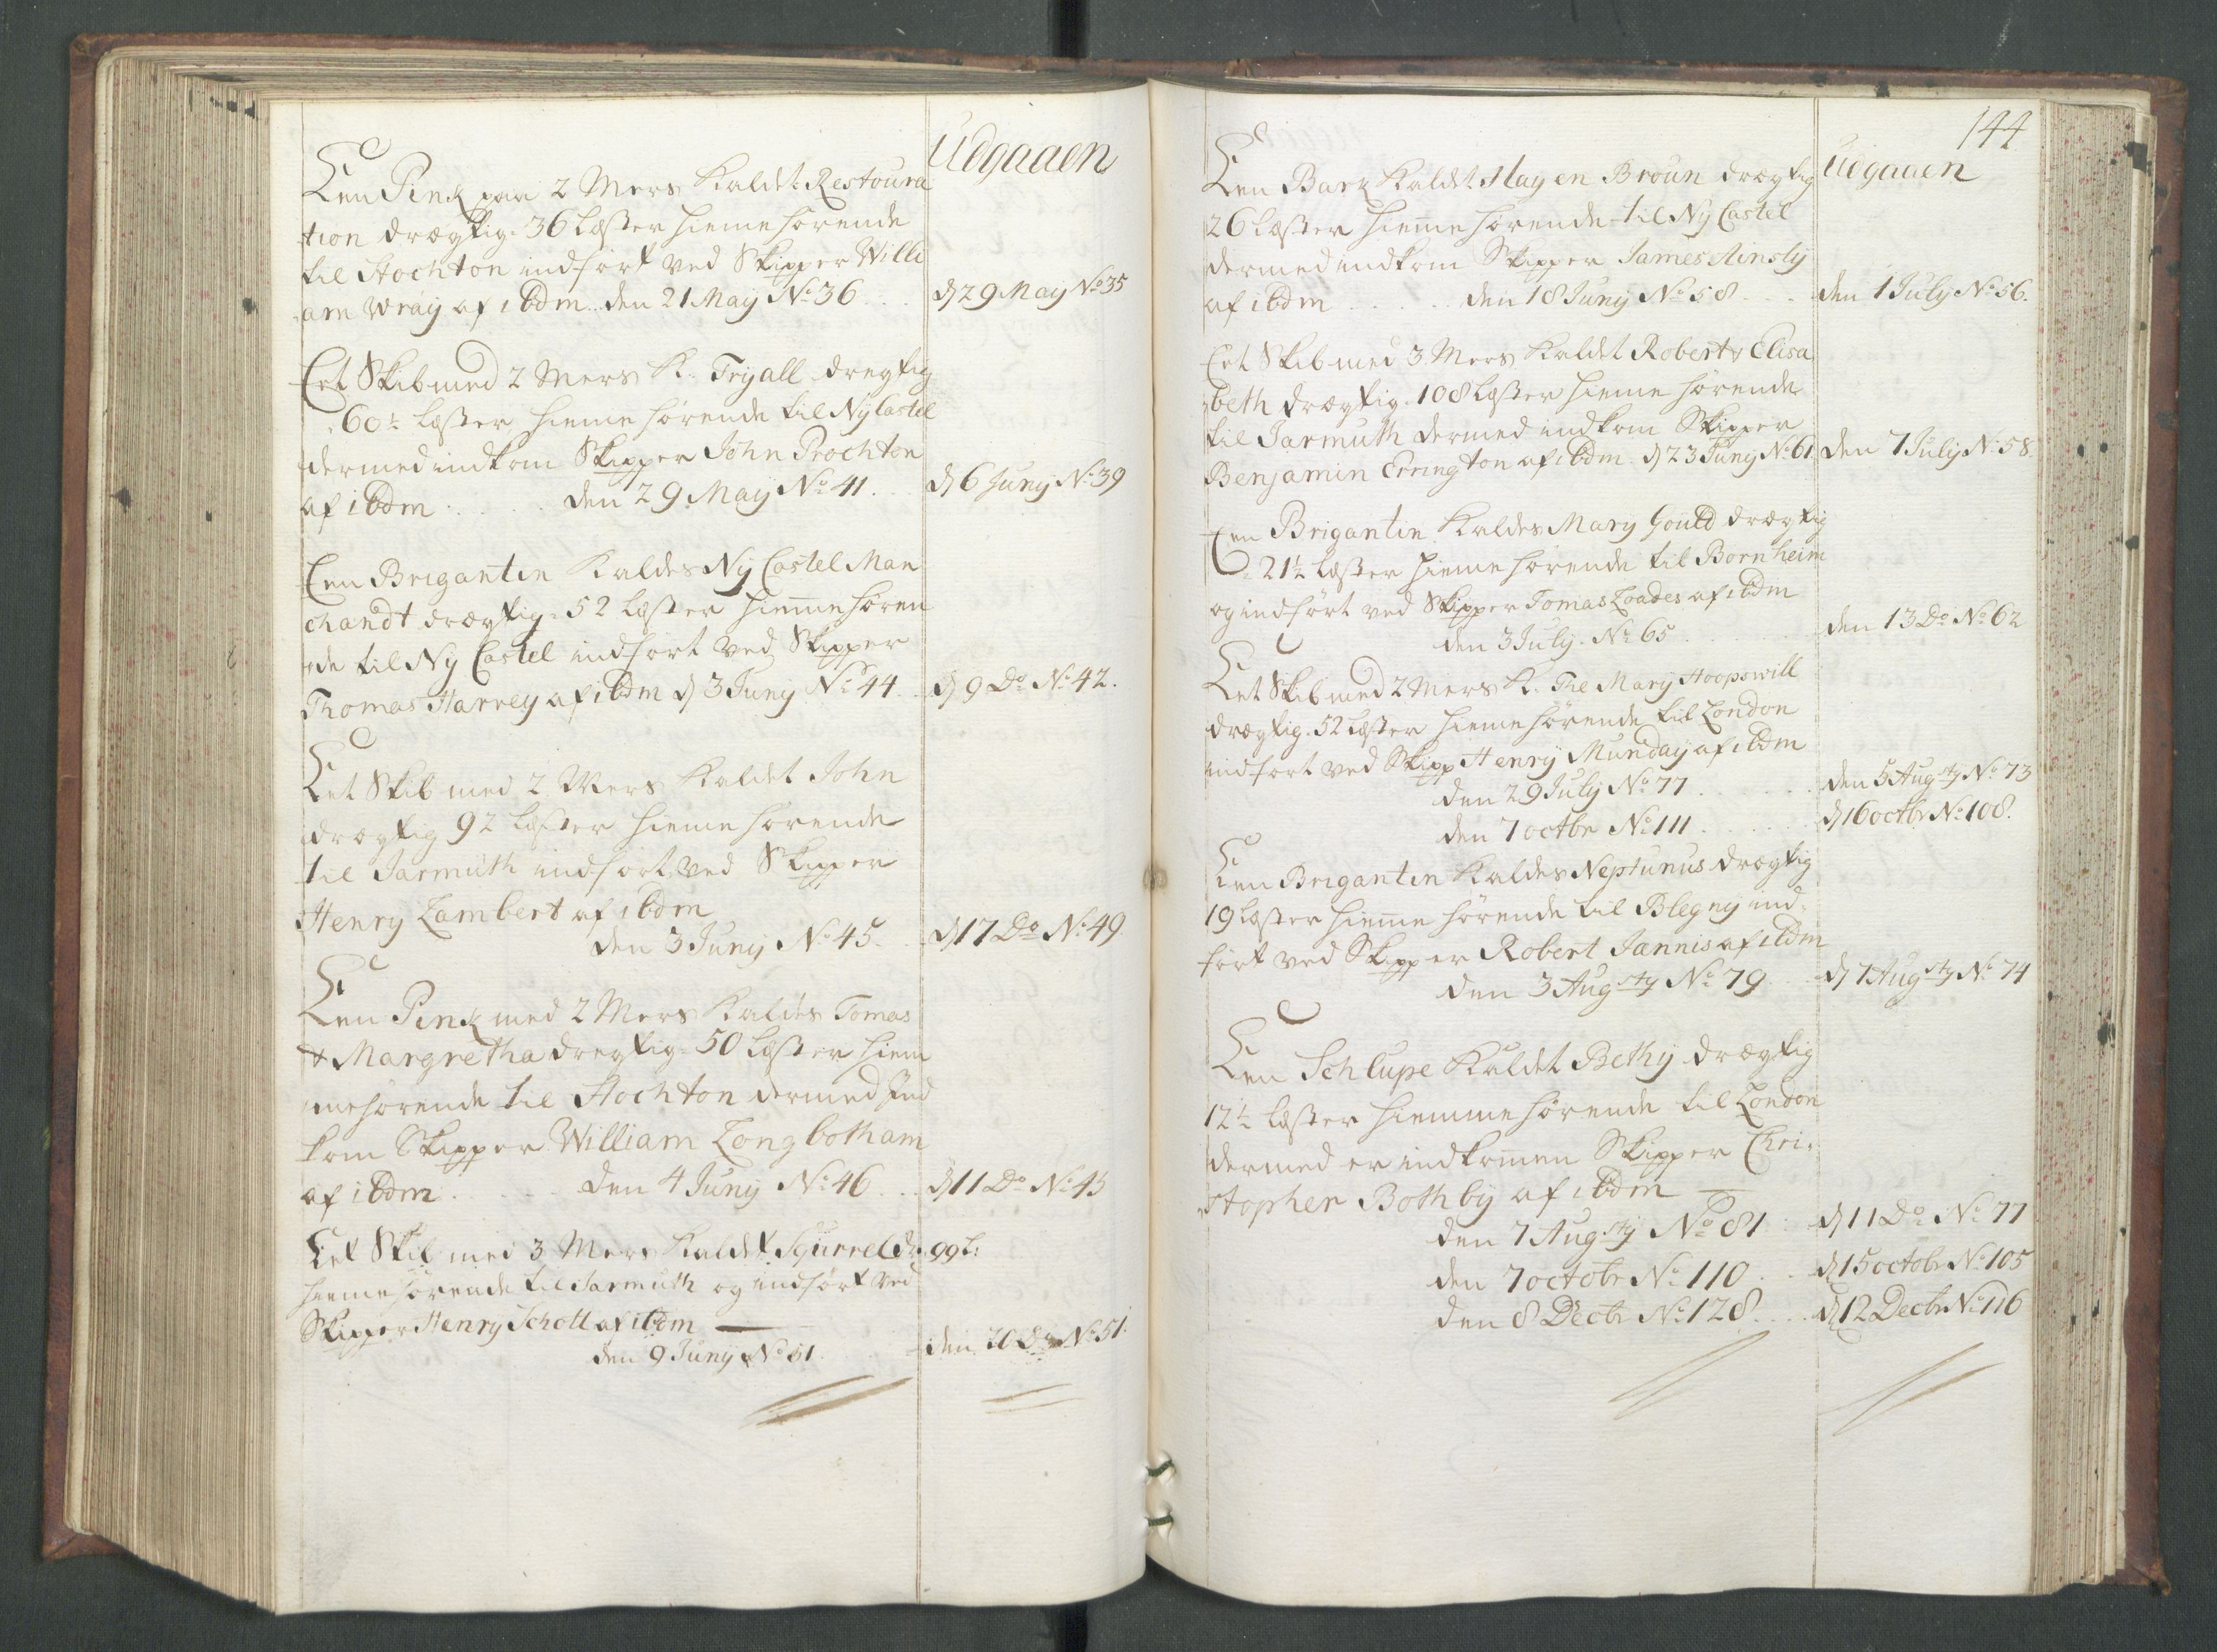 Udgaaen
Een Pink paa 2 Mers Kaldet Restoura
tion drægtig 36 Læster hiemehørende
til Stochton indført ved Skipper Willi
am Wray af ibdm den 21 May No 36 . . . d 29 May No 35
Eet Skib med 2 Mers K. Tryall dregtig
60½ Læster hiemehørende til Ny Castel
dermed indkom Skipper John Prochton
af ibdm . . . . den 29 May No 41 . . d 6 Juny No 39
Een Brigantin Kaldes Ny Castel Man
chandt drægtig 52 Læster hiem̄ehøren
de til Ny Castel indført ved Skipper
Thomas Harvey af ibdm d 3 Juny No 44 . . d 9 Do No 42.
Eet Skib med 2 Mers Kaldet John
drægtig 92 Læster hiemehørende
til Jarmuth indført ved Skipper
Henry Lambert af ibdm
den 3 Juny No 45 . . d 17 Do No 49
Een Pink med 2 Mers Kaldes Tomas
& Margretha dregtig 50 Læster hiem
mehørende til Stochton dermed Ind
kom Skipper William Longbotham
af ibdm . . . . den 4 Juny No 46 . . . d 11 Do No 45
Eet Skib med 3 Mers Kaldet Squrrel dr. 99 L:
hiemehørende til Jarmuth og indført ved
Skipper Henry Schott af ibdm —
den 9 Juny No 51 . . den 20 Do No 51.
144
Udgaaen
Een Bark Kaldet Hay en Broun drægtig
26 Læster hiem̄ehørende til Ny Castel
dermed indkom Skipper James Ainsly
af ibdm . . . . den 18 Juny No 58 . . . den 1 July No 56.
Eet Skib med 3 Mers Kaldet Robert & Elisa
beth drægtig 108 Læster hiemehørende
til Jarmuth dermed indkom Skipper
Benjamin Errington af ibdm d 23 Juny No 61. den 7 July No 58.
Een Brigantin Kaldes Mary Gould drægtig
21½ Læster hiemehørende til Bornheim
og indført ved Skipper Tomas Loades af ibdm
den 3 July No 65 . . . . den 13 Do No 62
Eet Skib med 2 Mers K. The Mary Hoopswill
drægtig 52 Læster hiemehørende til London
indført ved Skipp Henry Munday af ibdm
den 29 July No 77 . . . . den 5 Augsty No 73
den 7 octbr No 111 . . . . d 16 octbr No 108.
Een Brigantin Kaldes Neptunus drægtig
19 Læster hiem̄ehørende til Blegny ind-
ført ved Skipper Robert Jannis af ibdm
den 3 Augsty No 79 . . d 7 Augsty No 74
Een Schlupe Kaldet Bethy drægtig
12½ Læster hiemmehørende til London
dermed er indkom̄en Skipper Chri-
stopher Bothby af ibdm —
den 7 Augsty No 81 . . d 11 Do No 77
den 7 octobr No 110 . . d 15 octobr No 105
den 8 Decbr No 128 . . . d 12 Decbr No 116